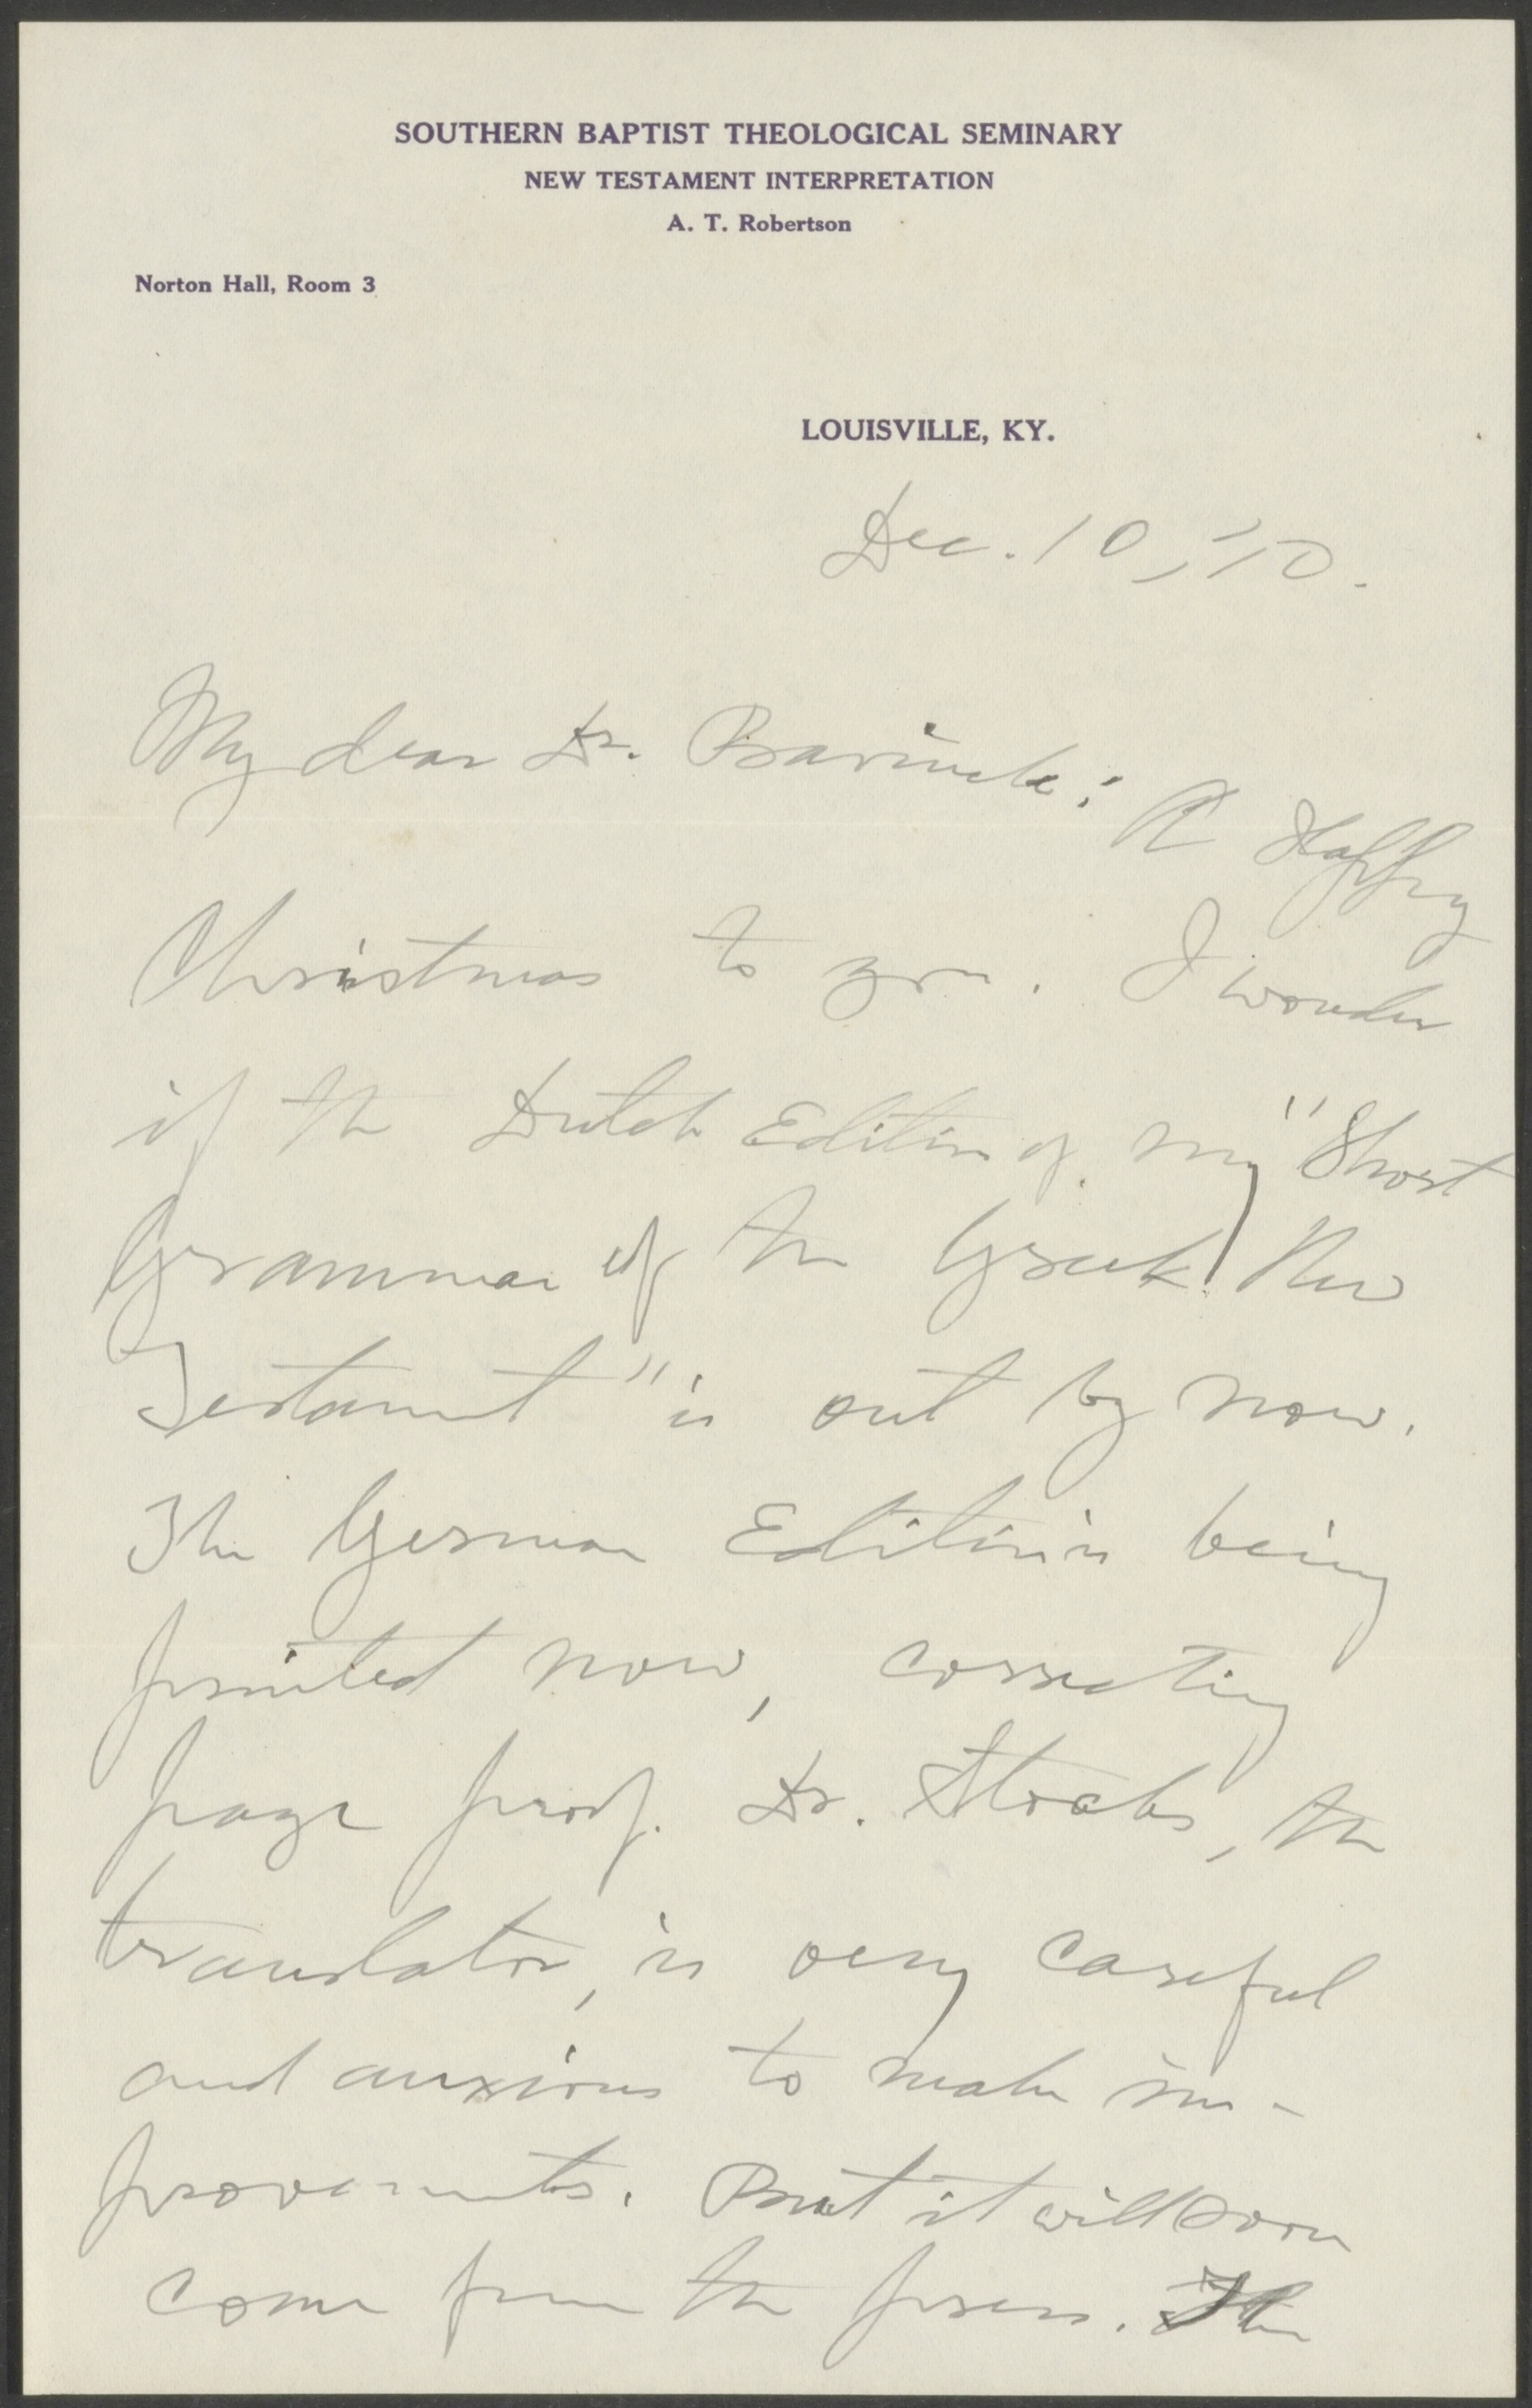 SOUTHERN BAPTIST THEOLOGICAL SEMINARY
NEW TESTAMENT INTERPRETATION
A. T. Robertson
Norton Hall, Room 3
LOUISVILLE, KY.
Dec. 10, '10.
My dear Dr. Bavinck: A Happy
Christmas to you. I wonder
if the Dutch Edition of my "Short
Grammar of the Greek New
Testament" is out by now.
The German Edition is being
printed now, correcting
page proof. Dr. Stocks, the
translator, is very careful
and anxious to make im-
provements. But it will soon
come from the press. The